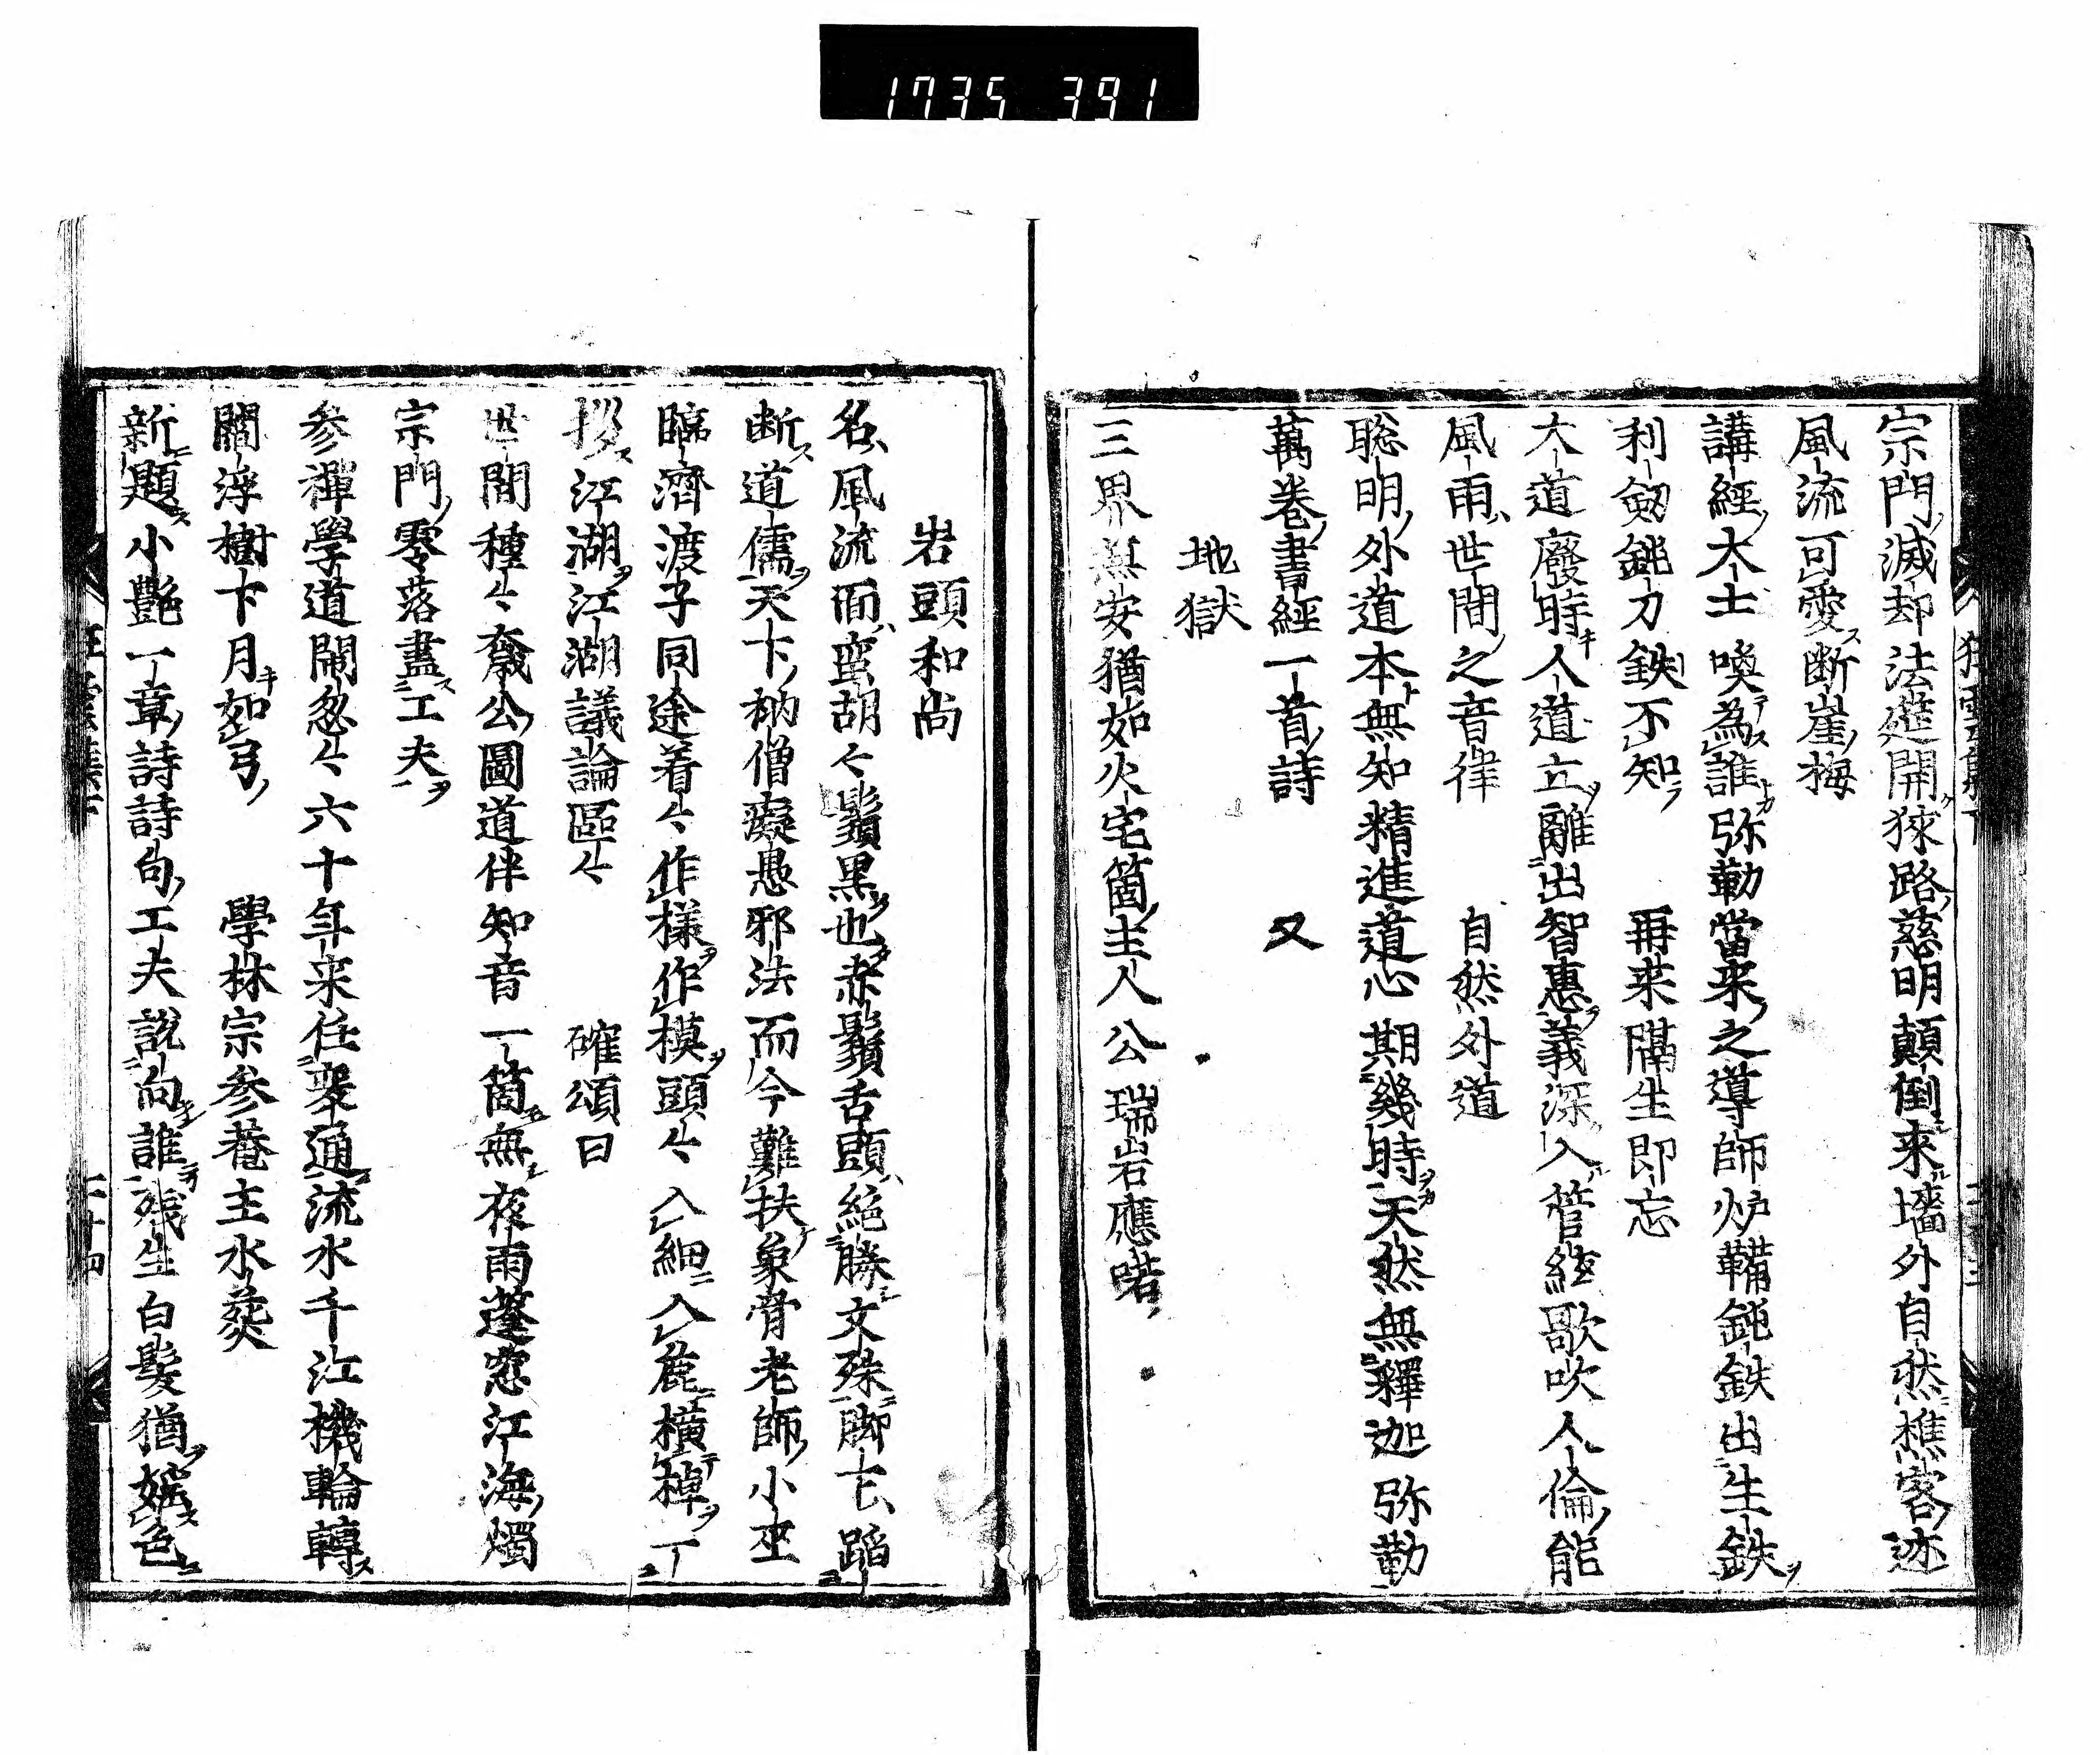 1735 391
宗門滅却法筵開狹路慈明顛倒来墻外自然樵客迹
風流可愛断崖梅
講經大士喚為誰弥勒當来之導師炉鞴鈍鉄出生鉄
利劔鈍刀鉄不知　再来隔生即忘
大道廢時人道立離出智惠義深入管絃歌吹人倫能
風雨世間之音律　自然外道
聡明外道本無知精進道心期幾時天然無釋迦弥勒
萬卷書經一首詩　又
地獄
三界無安猶如火宅箇主人公瑞岩應喏
岩頭和尚
名風流面蛮胡々鬚黒也赤鬚舌頭絶勝文殊脚下蹈
断道儒天下衲僧癡愚邪法而今難扶象骨老師小巫
臨濟渡子同途着々作樣作模頭々入細入麁横棹丁
拶江湖江湖議論區々　確頌曰
世間種々龕公圖道伴知音一箇無夜雨蓬窓江海燭
宗門零落盡工夫
参禅學道閙忽々六十年来住衆通流水千江機輪轉
閻浮樹下月如弓　學林宗参菴主水葬
新題小艶一章詩詩句工夫説向誰残生白髪猶婬色